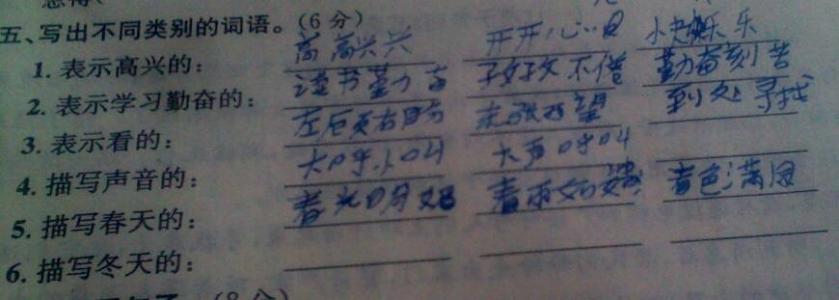 五、写出不同类别的词语。(6分)
1. 表示高兴的: 高高兴兴 开开心心 快乐
2. 表示学习勤奋的: 读书勤奋 孜孜不倦 勤奋刻苦
3. 表示看的: 左顾右盼 东张西望 到处寻找
4. 描写声音的: 大呼小叫 大声呼叫
5. 描写春天的: 春光明媚 春雨 春色满园
6. 描写冬天的:
(8分)